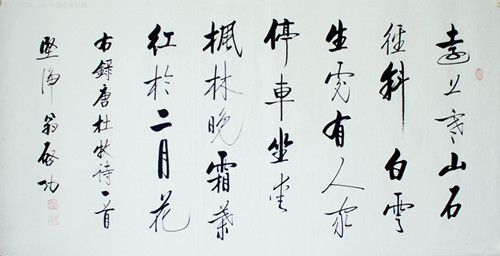 遠上寒山石
徑斜白雲
生處有人家
停車坐愛
楓林晚霜葉
紅於二月花
右錄唐杜牧詩一首
堅淨翁啟功